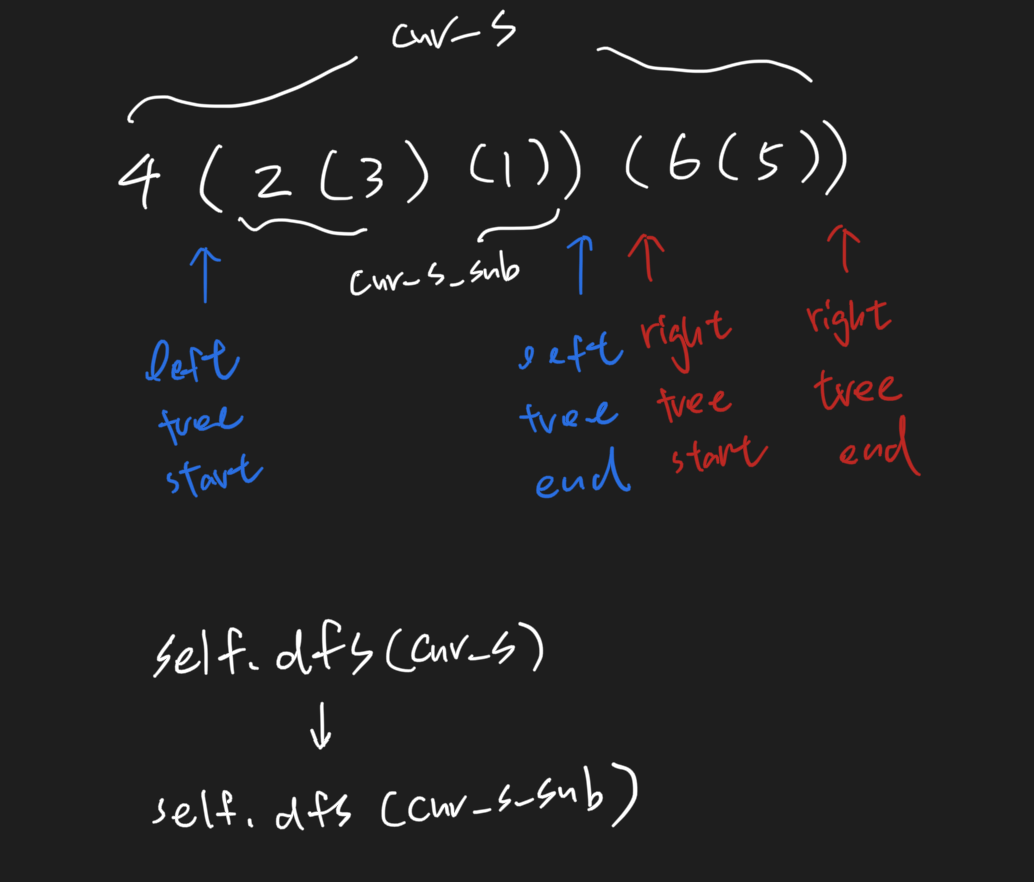 cur_s
4 ( 2 ( 3 ) ( 1 ) ) ( 6 ( 5 ) )
cur_s_sub
left
tree
start
left
tree
end
right
tree
start
right
tree
end
self.dfs(cur_s)
↓
self.dfs (cur_s_sub)